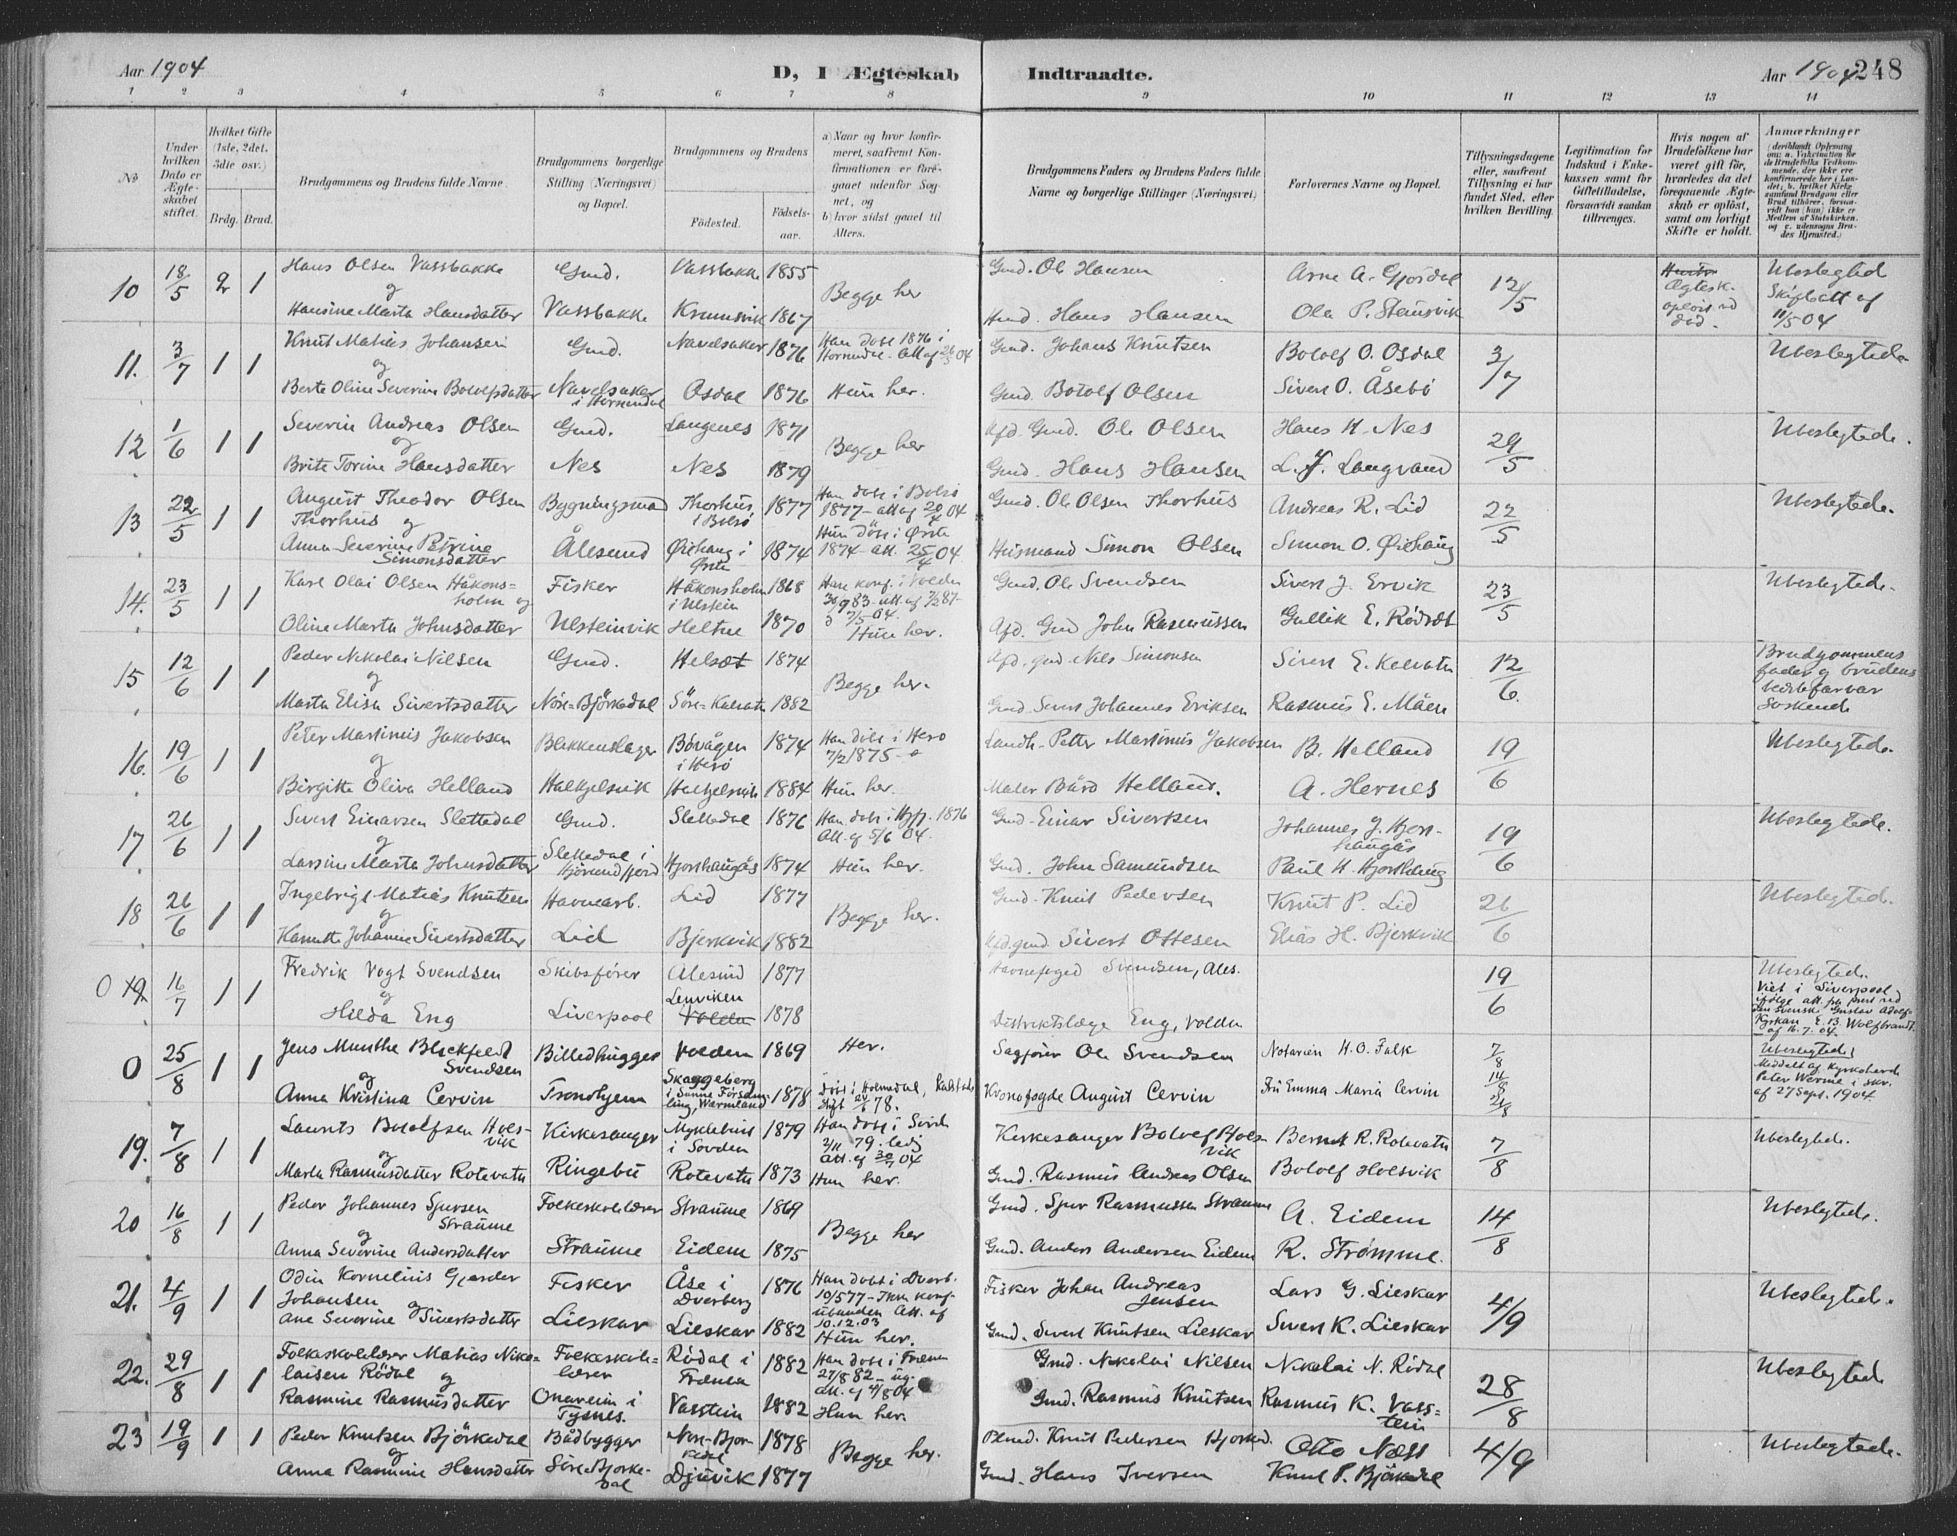 Aar 1904
D, I Ægteskab Indtraadte.
Aar 1904
248
1 2 3 4 5 6 7 8 9 10 11 12 13 14
No
Under hvilken Dato er Ægteskabet stiftet.
Hvilket Gifte (1ste, 2det, 3die osv.)
Brdg. Brud.
Brudgommens og Brudens fulde Navne.
Brudgommens borgerlige Stilling (Næringsvei) og Bopæl.
Brudgommens og Brudens
Fødested.
Fødselsaar.
a) Naar og hvor konfirmeret, saafremt Konfirmationen er foregaaet udenfor Sognet, og
b) hvor sidst gaaet til Alters.
Brudgommens Faders og Brudens Faders fulde Navne og borgerlige Stillinger (Næringsvei)
Forlovernes Navne og Bopæl.
Tillysningsdagene eller, saafremt Tillysning ei har fundet Sted, efter hvilken Bevilling.
Legitimation for Indskud i Enkekassen samt for Giftetilladelse, forsaavidt saadan tiltrænges.
Hvis nogen af Brudefolkene har været gift før, hvorledes da det foregaaende Ægteskab er opløst, samt om lovligt Skifte er holdt.
Anmærkninger
10 18/5 2 1 Hans Olsen Vassbakke Gmd. Vassbakke 1855 Begge her Gmd. Ole Hansen Arne A. Gjordal 12/5 Ægtesk. opløst ved død. Ubeslegted Skifteatt af 11/5 04
og
Hansine Marta Hansdatter Vassbakke Krumsvik 1867 Hans Hansen Ola P. Stensvik
11. 3/7 1 1 Knut Matias Johansen Gmd. Navelsaker 1876 Han døbt 1876 i Hornindal Att af 26/5 04 Gmd. Johans Knutsen Botolf O. Osdal 3/7 Ubeslegtede
og
Berte Oline Severine Botolfsdatter Navelsaker i Hornindal Osdal 1876 Hun her. Gmd. Botolf Olsen Sivert O. Åsebø
12 1/6 1 1 Severin Andreas Olsen Gmd. Langenes 1871 Begge her Afd. Gmd. Ole Olsen Hans H. Nes 29/5 Ubeslegtede.
og
Brite Torine Hansdatter Nes Nes 1879 Gmd. Hans Hansen L. J. Langvand
13 22/5 1 1 August Theodor Olsen Thorhus og Bygningsmand Thorhus i Bolsø 1877 Han døbt i Bolsø 1877 - att af 20/4 04 Gmd. Ole Olsen Thorhus Andreas R. Lid 22/5 Ubeslegtede.
Anna Severine Petrine Simonsdatter Ålesund Øiehaug i Ørsta 1874 Hun døbt i Ørsta 1874 - att. 25/4 04 Husmand Simon Olsen Simon O. Øiehaug
14. 23/5 1 1 Karl Olai Olsen Håkonsholm og Fisker Håkonsholm i Ulstein 1868 Han konf. i Volden Gmd. Ole Svendsen Sivert J. Ervik 23/5 Ubeslegtede.
Oline Marta Johnsdatter Ulsteinvik Heltne 1870 Hun her. Afd. Gmd John Rasmussen Gullik E. Rødsæt
15 12/6 1 1 Peder Nikolai Nilsen Gmd. Helsæt 1874 Begge her. Afd. gmd Nils Simonsen Sivert E. Kalvatn 12/6. Brudgommens fader og brudens bedstefar var søskende
og
Marta Elisa Sivertsdatter Nøre-Bjørkedal Søre-Kalvatn 1882 Gmd. Sivert Johannes Eriksen Rasmus E. Måen
16. 19/6 1 1 Peter Martinus Jakobsen Blikkenslager Bøvågen i Herø 1874 Han døbt i Herø 7/2 1875 Landh. Petter Martinus Jakobsen B. Helland 19/6 Ubeslegtede.
og
Birgitte Oliva Helland Halkjelsvik Halkjelsvik 1884 Hun her. Maler Bård Helland. A. Hernes
17. 26/6 1 1 Sivert Einarsen Slettedal Gmd. Slettedal 1876 Han døbt i Hjfj. 1876 Att. af 5/6 04. Gmd. Einar Sivertsen Johannes J. Hjorthaugås 19/6 Ubeslegtede.
og
Larsine Marta Johnsdatter Slettedal i Hjørundfjord Hjorthaugås 1874 Hun her. Gmd. John Samundsen Paul H. Hjorthaug
18 26/6 1 1 Ingebrigt Matias Knutsen Havnearb. Lid 1877 Begge her. Gmd. Knut Pedersen Knut P. Lid 26/6 Ubeslegtede.
og
Kanutte Johanne Sivertsdatter Lid Bjerkvik 1882 Afd. gmd. Sivert Ottesen Elias H. Bjerkvik
0 19 16/7 1 1 Fredrik Vogt Svendsen Skibsfører Ålesund 1877 Havnefoged Svendsen, Ales. 19/6 Ubeslegtede. Viet i Liverpool ifølge att. fra prest ved den svenske Gustav Adolfs Kyrkan E. B. Wolfbrandt af 16.7.04.
og
Hilda Eng Liverpool Lenviken Volden 1878 Distriktslæge Eng, Volden
0 25/8 1 1 Jens Munthe Blickfeldt Svendsen Billedhugger Volden 1869 Her. Sagfører Ole Svendsen Notarien H. O. Falk 7/8 14/8 21/8 Ubeslegtede, Meddelt af Kyrkoherde Peter Warme i skr. af 27 Sept. 1904.
og
Anna Kristina Cervin Tronhjem Skaggeberg i Sunne Försam-ling, Warmland 1878 Kronofogde August Cervin Fru Emma Maria Cervin
19. 7/8 1 1 Laurits Botolfsen Holsvik Kirkesanger Myklebust i Søvden 1879 Han døbt i Søvde 2/11 79. ledj att. af 30/7 04 Kirkesanger Botolf Holsvik Bernt R. Rotevatn 7/8 Ubeslegtede.
og
Marta Rasmusdatter Rotevatn Ringebu Rotevatn 1873 Hun her. Gmd. Rasmus Andreas Olsen Botolf Holsvik
20 16/8 1 1 Peder Johannes Sjursen Straume Folkeskolelærer Straume 1869 Begge her Gmd. Sjur Rasmussen Straume A. Eidem 14/8 Ubeslegtede.
og
Anna Severine Andersdatter Straume Eidem 1875 Gmd. Anders Andersen Eidem R. Strømme.
21. 4/9 1 1 Odin Kornelius Gjerder Johansen og Fisker Åse i Dverberg 1876 Han døbt i Dverb. 10/5 77 - Att. af 10.12.03 Fisker Johan Andreas Jensen Lars G. Lieskar 4/9 Ubeslegtede.
Ane Severine Sivertsdatter Lieskar Lieskar 1882 Hun her. Gmd. Sivert Knutsen Lieskar Sivert K. Lieskar
22. 29/8 1 1 Folkeskolelærer Matias Nikolaisen Rødal og Folkeskolelærer Rødal i Frænen 1882 Han døbt i Frænen 27/8 82 - ug. att. af 4/8 04 Gmd. Nikolai Nilsen Nikolai N. Rødal 28/8 Ubeslegtede
Rasmine Rasmusdatter Onareim i Tysnes. Vasstein 1882 Hun her. Gmd. Rasmus Knutsen Rasmus K. Vasstein
23 19/9 1 1 Peder Knutsen Bjørkedal Bådbygger Nøre-Bjørkedal 1878 Begge her. Knut Pedersen Bjorked. Otto Næss 4/9 Ubeslegtede.
og
Anna Rasmine Hansdatter Søre Bjorkedal Djuvik 1877 Gmd. Hans Iversen Knut P. Bjørkedal